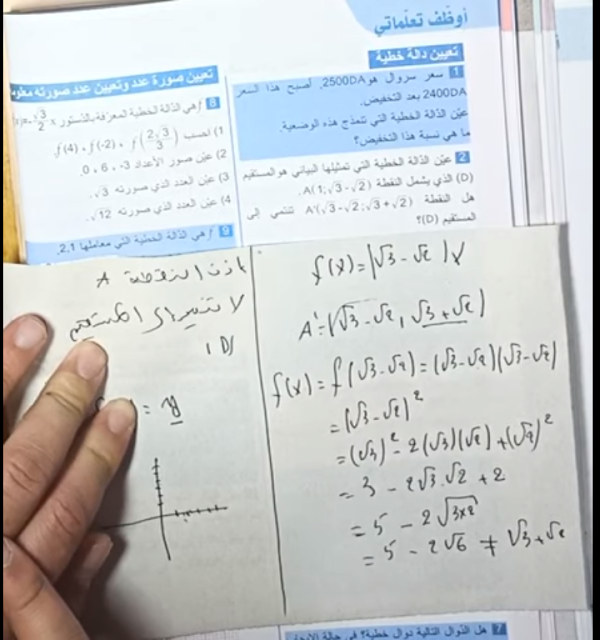 أوظف تعلّماتي
تعيين دالة خطية
1 سعر سروال هو 2500DA، أصبح هذا السعر
2400DA بعد التخفيض.
عيّن الدالة الخطية التي تنمذج هذه الوضعية.
ما هي نسبة هذا التخفيض؟
2 عيّن الدالة الخطية التي تمثيلها البياني هو المستقيم
(D) الذي يشمل النقطة A(1;√3-√2).
هل النقطة A'(√3-√2;√3+√2) تنتمي إلى
المستقيم (D)؟
تعيين صورة عدد وتعيين عدد صورته
8 f هي الدالة الخطية المعرّفة بالدستور √3/2 x
1) احسب f(2√3/3) ، f(-2) ، f(4).
2) عيّن صور الأعداد 3- ، 6 ، 0.
3) عيّن العدد الذي صورته √3.
4) عيّن العدد الذي صورته √12.
9 f هي الدالة الخطية التي معاملها 2,1.
f(x) = (√3 - √2) x
A' = (√3 - √2, √3 + √2)
f(x) = f(√3 - √2) = (√3 - √2)(√3 - √2)
= (√3 - √2)²
= (√3)² - 2(√3)(√2) + (√2)²
= 3 - 2√3 . √2 + 2
= 5 - 2√3×2
= 5 - 2√6 ≠ √3 + √2
اذن النقطة A
لا تنتمي الى المستقيم
(D)
= y
7 هل الدوال التالية دوال خطية؟ في حالة